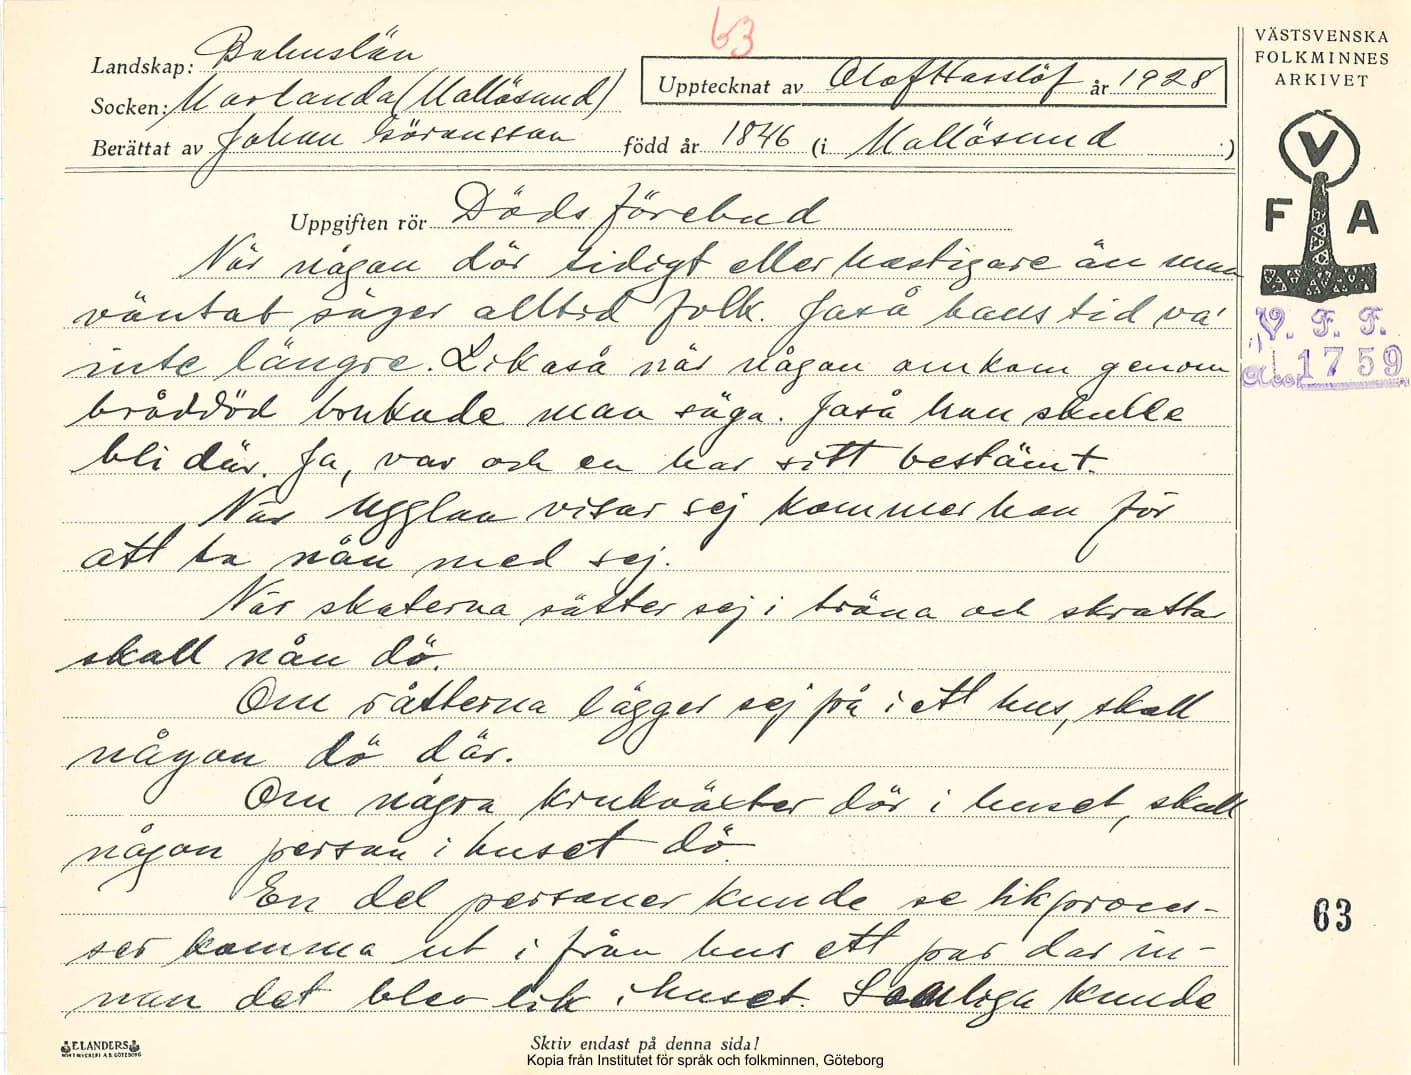 63
Landskap: Bohuslän
Socken: Morlanda (Mollösund)
Upptecknat av Olof Hasslöf år 1928
Berättat av Johan Göransson född år 1846 (i Mollösund )
VÄSTSVENSKA
FOLKMINNES
ARKIVET
V
F A
V. F. F.
1759
Uppgiften rör Dödsförebud
När någon dör tidigt eller hastigare än man
väntat säger alltid folk. Jaså hans tid va'
inte längre. Likaså när någon omkom genom
bråddöd brukade man säga. Jaså han skulle
bli där. Ja, var och en har sitt bestämt.
När Ugglan visar sej kommer hon för
att ta nån med sej.
När skaterna sätter sej i träna och skrattar
skall nån dö.
Om råtterna lägger sej på i ett hus, skall
någon dö där.
Om några krukväxter dör i huset, skall
någon person i huset dö
En del personer kunde se likproces-
ser komma ut i från hus ett par dar in-
nan det blev lik i huset. Somliga kunde
63
ELANDERS
BOKTRYCKERI A.B. GÖTEBORG
Skriv endast på denna sida!
Kopia från Institutet för språk och folkminnen, Göteborg